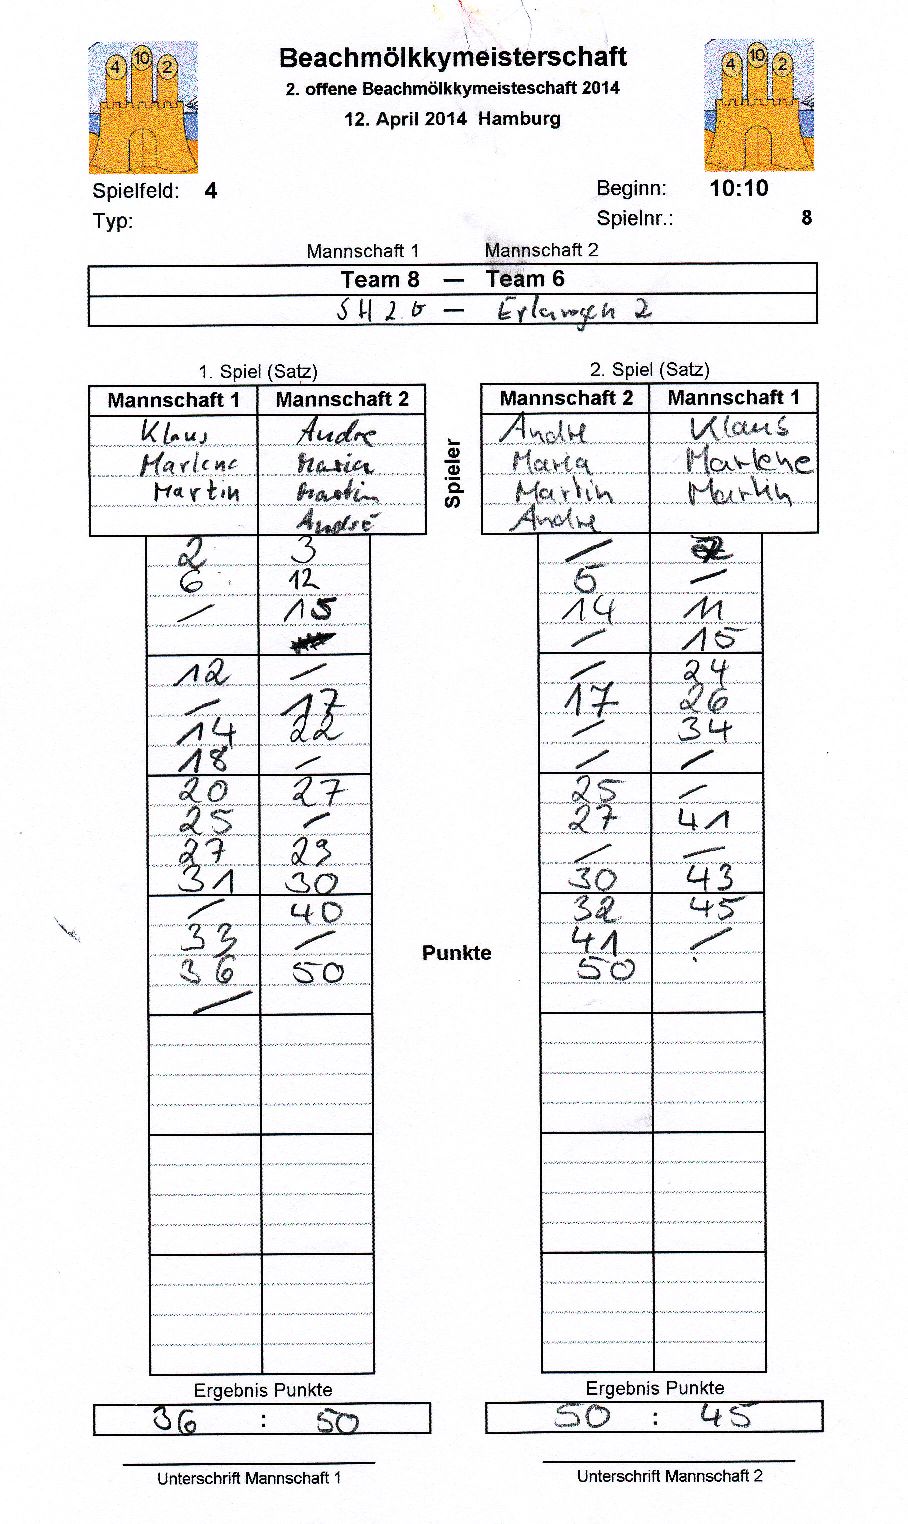 Beachmölkkymeisterschaft
2. offene Beachmölkkymeisteschaft 2014
12. April 2014 Hamburg
4 10 2
4 10 2
Spielfeld: 4 Beginn: 10:10
Typ: Spielnr.: 8
Mannschaft 1 Mannschaft 2
Team 8 — Team 6
SH 2 — Erlangen 2
1. Spiel (Satz) 2. Spiel (Satz)
Mannschaft 1 Mannschaft 2 Mannschaft 2 Mannschaft 1
Klaus Andre Andre Klaus
Marlene Maria Maria Marlene
Martin Martin Martin Martin
André Andre
Spieler
2 3 /
6 12 5 /
/ 15 14 11
/ 15
12 / / 24
/ 17 17 26
14 22 / 34
18 / / /
20 27 25 /
25 / 27 41
27 29 / /
31 30 30 43
/ 40 32 45
33 / 41 /
36 50 50
/
Punkte
Ergebnis Punkte Ergebnis Punkte
36 : 50 50 : 45
Unterschrift Mannschaft 1 Unterschrift Mannschaft 2